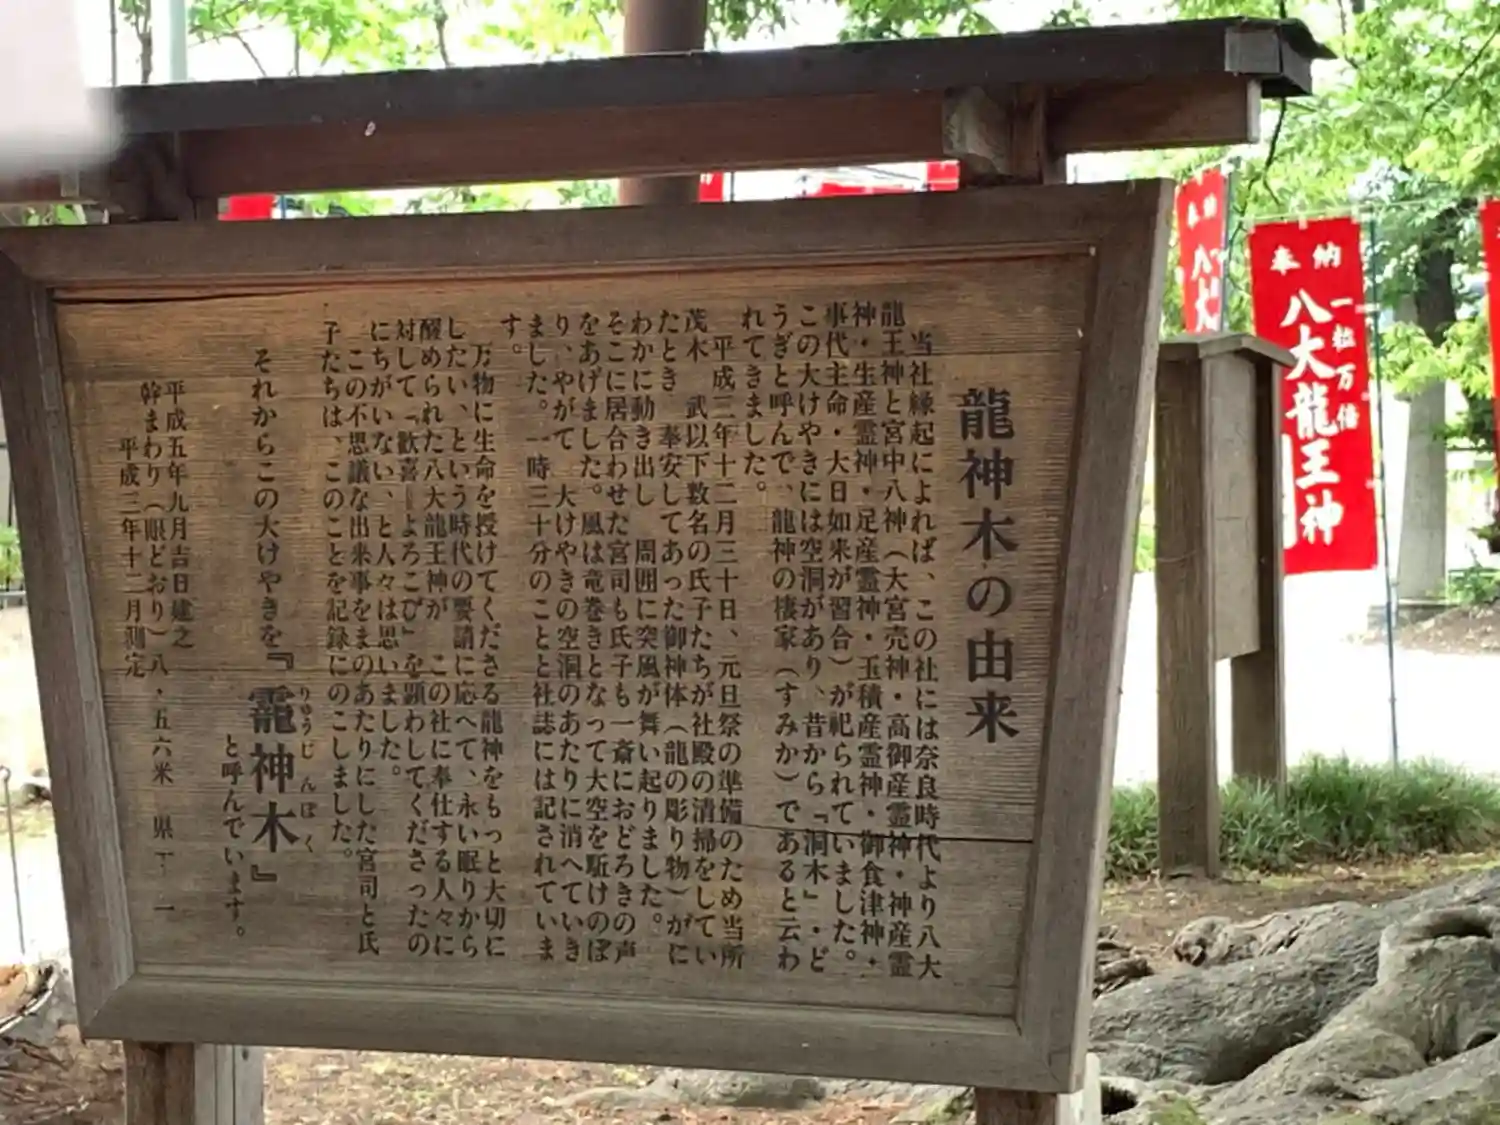 龍神木の由来
当社縁起によれば、この社には奈良時代より八大
龍王神と宮中八神（大宮売神・高御産霊神・神産霊
神・生産霊神・足産霊神・玉積産霊神・御食津神・
事代主命・大日如来が習合）が祀られていました。
この大けやきには空洞があり、昔から『洞木』・ど
うぎと呼んで、龍神の棲家（すみか）であると云わ
れてきました。
平成三年十二月三十日、元旦祭の準備のため当所
茂木　武以下数名の氏子たちが社殿の清掃をしてい
たとき　奉安してあった御神体（龍の彫り物）がに
わかに動き出し　周囲に突風が舞い起りました。
そこに居合わせた宮司も氏子も一斎におどろきの声
をあげました。風は竜巻きとなって大空を駈けのぼ
り、やがて　大けやきの空洞のあたりに消へていき
ました。一時三十分のことと社誌には記されていま
す。
万物に生命を授けてくださる龍神をもっと大切に
したい、という時代の要請に応へて、永い眠りから
醒められた八大龍王神が　この社に奉仕する人々に
対して「歓喜＝よろこび」を顕わしてくださったの
にちがいない、と人々は思いました。
この不思議な出来事をまのあたりにした宮司と氏
子たちは、このことを記録にのこしました。
それからこの大けやきを『龗神木』
りゅうじんぼく
と呼んでいます。
平成五年九月吉日建之
幹まわり（眼どおり）八・五六米　県下
平成三年十二月測定
奉納
一粒万倍
八大龍王神
奉納
八大